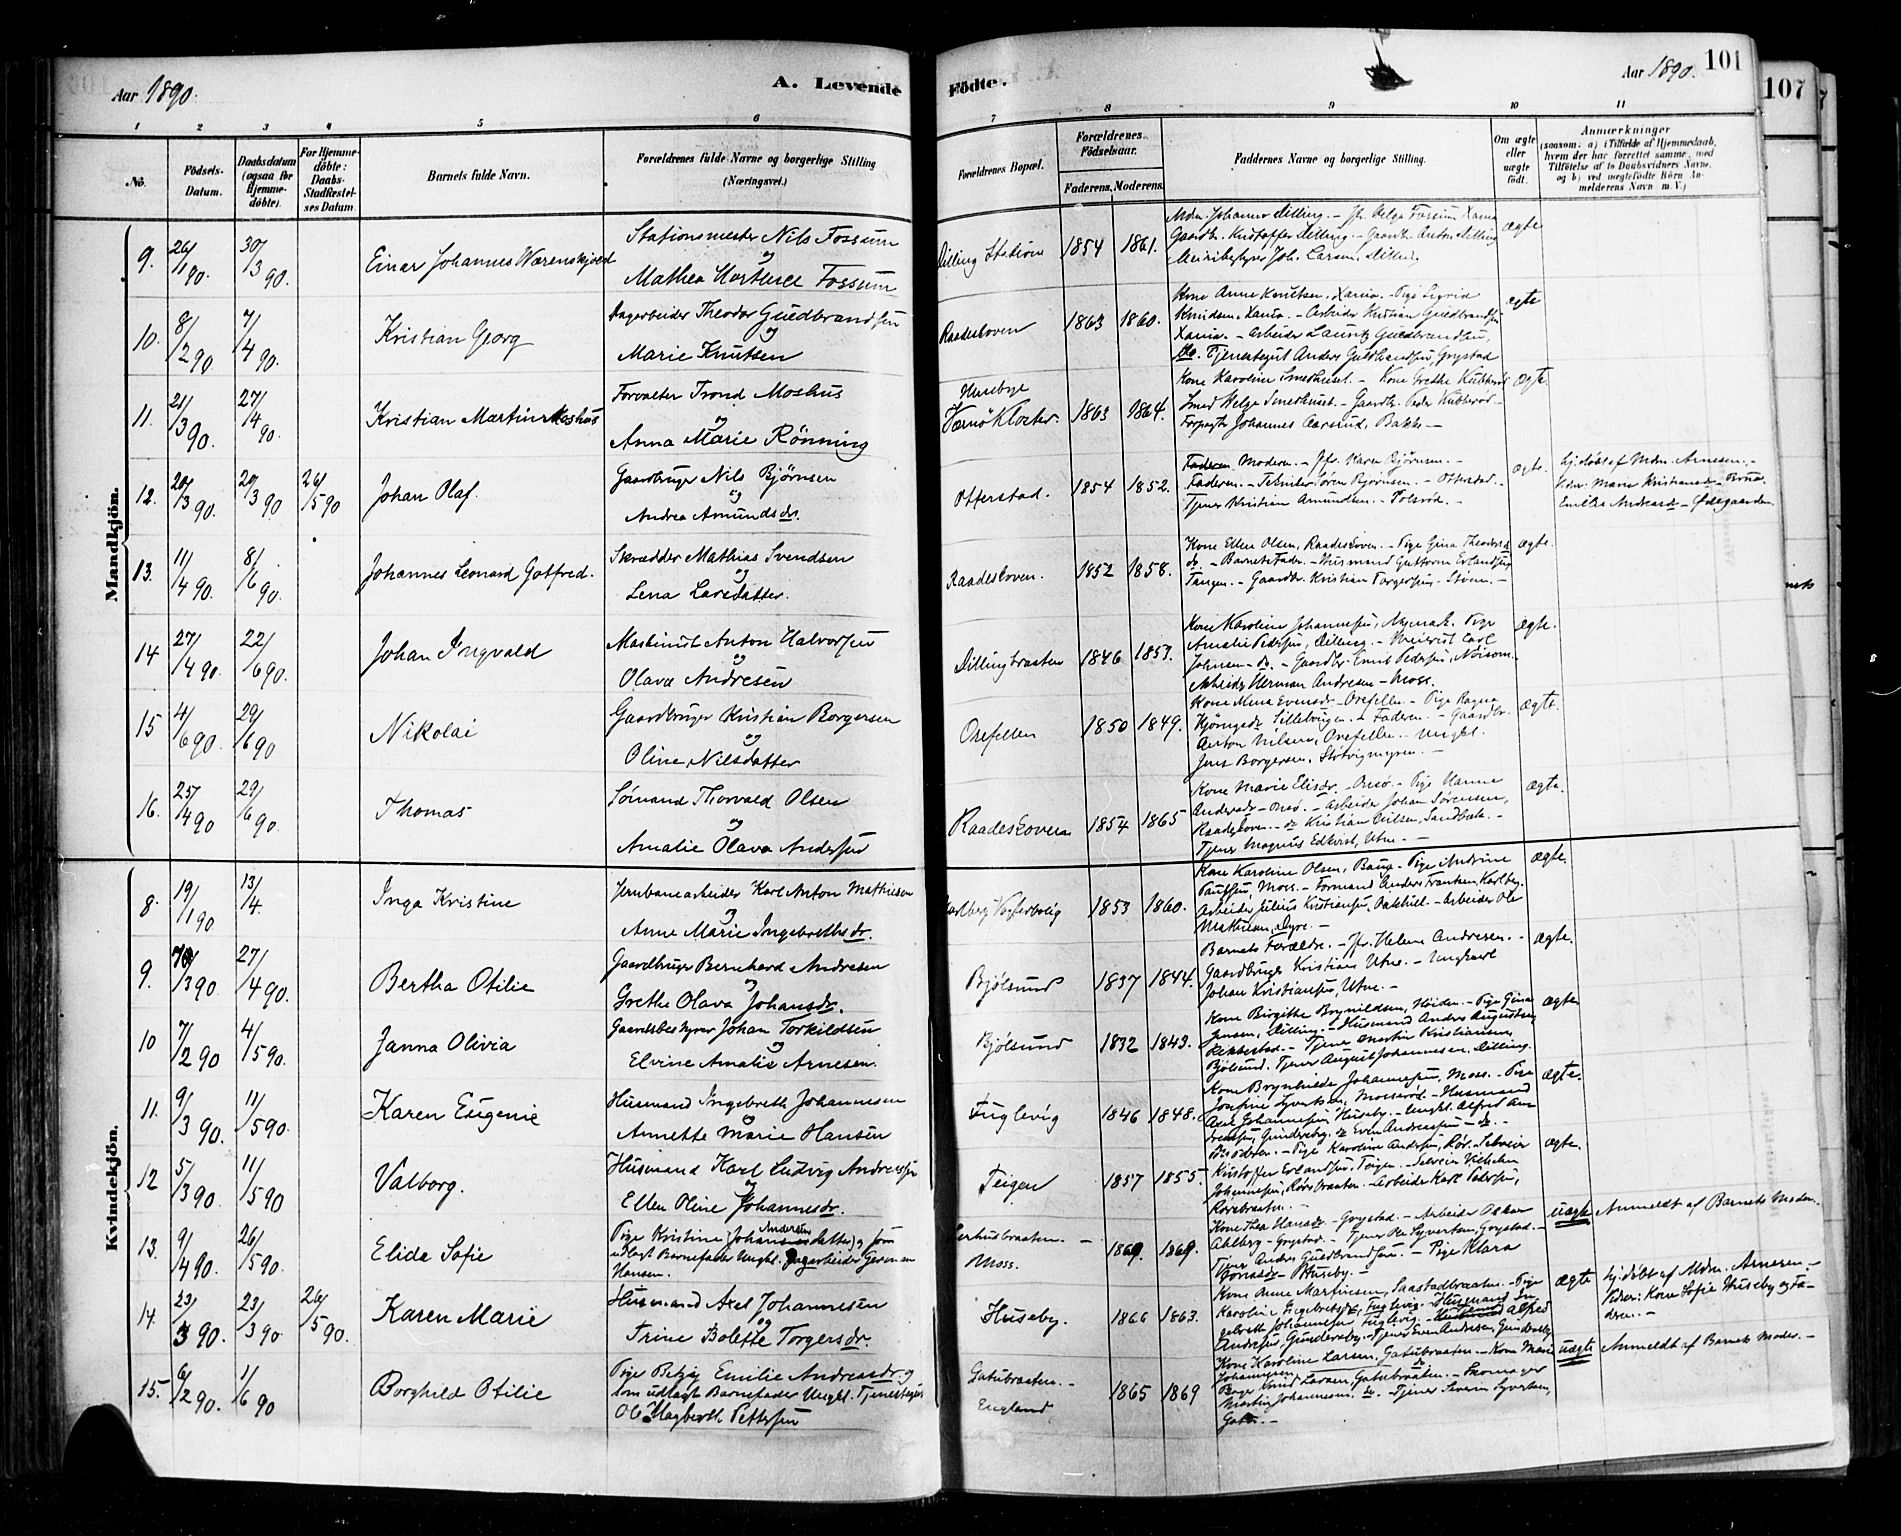 Aar 1890.
A. Levende
Födte.
Aar 1890.
101
107
1 2 3 4 5 6
7 8 9 10 11
No.
Födsels-
Datum.
Daabsdatum
(ogsaa for
Hjemme-
döbte).
For Hjemme-
döbte:
Daabs-
Stadfæstel-
ses Datum
Barnets fulde Navn.
Forældrenes fulde Navne og borgerlige Stilling
(Næringsvei.)
Forældrenes Bopæl.
Forældrenes
Födselsaar.
Faderens. Moderens.
Faddernes Navne og borgerlige Stilling.
Om ægte
eller
uægte
födt.
Anmærkninger
(saasom: a) i Tilfælde af Hjemmedaab,
hvem der har forrettet samme, med
Tilföielse af to Daabsvidners Navne,
og b) ved uægtefödte Börn An-
melderens Navn m. V.)
Mandkjön.
9. 26/1 90. 30/3 90. Einar Johannes Wærenskjold
Stationsmester Nils Fossum
og
Mathea Fossum
Dilling Station 1854 1861.
Mdm. Johanne Dilling. – Jfr. Helga Fossum Xania
Gaardb. Kristoffer Dilling. – Gaardb. Anton Dilling
Meieribestyrer Joh. Larsen, Dilling.
ægte
10. 8/2 90. 7/4 90. Kristian Georg
Dagarbeider Theodor Guldbrandsen
og
Marie Knutsen
Raadeskoven 1863 1860.
Kone Anne Knutsen, Xania. – Pige Sigrid
Knudsen, Xania. – Arbeider Kristian Guldbrandsen
Xania. – Arbeider Lauritz Guldbrandsen,
do. Tjenestegut Anders Guldbrandsen, Grystad
ægte
11. 21/3 90. 27/4 90. Kristian Martin Moshus
Forvalter Trond Moshus
og
Anna Marie Rönning
Huseby
Værnö Kloster. 1863 1864.
Kone Karoline Smedhuset. – Kone Grethe Kubberöd
Smed Helge Smedhuset. – Gaardb. Peder Kubberöd –
Forpagter Johannes Aarsrud, Bakke –
ægte.
12. 20/3 90. 20/3 90 26/5 90 Johan Olaf.
Gaardbruger Nils Bjørnsen
og
Andrea Amundsdr.
Otterstad. 1854 1852.
Faderen. Moderen. – Jfr. Karen Bjørnsen. –
Faderen. – Sören Bjornsen. – Otterstad –
Tjener Kristian Amundsen. –
ægte.
hj. döbt af Mdm. Arnesen. –
Vidn: Marie Kristiansdr –
Emilie Andreasdr – Ødegaarden
13. 11/4 90. 8/6 90. Johannes Leonard Gotfred.
Skrædder Mathias Svendsen
og
Lena Larsdatter.
Raadeskoven. 1852 1858.
Kone Ellen Olsen, Raadeskoven. – Pige Gina Theodors
dr. – Barnets Fader. – Husmand Guttorm Erlandsen
Tangen. – Gaardbr. Kristian Torgersen – Stömne. –
ægte.
14 27/4 90. 22/6 90. Johan Ingvald
Maskinist Anton Halvorsen
og
Olava Andresen
Dillingbraaten 1846 1853.
Kone Karoline Johannesen, – Pige
Amalie Pedersen, Dilling. – Carl
Johnsen – do. – Gaardbr. Emil Pedersen,
Arbeider Herman Andresen – Moss.
ægte.
15 4/6 90. 29/6 90 Nikolai
Gaardbruger Kristian Borgersen
og
Oline Nilsdatter
Orefellen 1850 1849.
Kone Mina Evensdr – Orefellen – Pige Ragna
Faderen. – Gaardbr.
Anton Nilsen, Orefellen – Ungkl.
Jens Borgersen,
ægte.
16. 25/4 90 29/6 90. Thomas
Sömand Thorvald Olsen
og
Amalie Olava Andersen
Raadeskoven 1854 1865
Kone Marie Elisdr. Onsö. – Pige Hanne
Andersdr – Onsö. – Arbeider Johan Sörensen,
Raadeskoven. – do Kristian Nilsen, Sandbæk. –
Tjener Magnus Edkvist, Utne. –
ægte.
Kvindekjön.
8. 19/1 90 13/4. Inga Kristine
Jernbanearbeider Karl Anton Mathisen
og
Anne Marie Ingebrethsdr.
Karlberg Vogterbolig 1853 1860.
Kone Karoline Olsen, – Pige Andrine
Paulsen, Moss. – Formand Anders Fransen, Karlberg.
Arbeider Julius Kristiansen, – Arbeider Ole
Mathisen, Dyre. –
ægte.
9. 10/3 90 27/4 90. Bertha Otilie
Gaardbruger Bernhard Andresen
og
Grethe Olava Johansdr.
Bjölsund 1837 1844.
Barnets Forældre. – Jfr. Helene Andresen. –
Gaardbruger Kristian Utne. – Ungkarl
Johan Kristiansen, Utne. –
ægte.
10 7/2 90 4/5 90. Janna Olivia
Gaardsbestyrer Johan Torkildsen
og
Elvine Amalie Arnesen.
Bjölsund 1832 1843.
Kone Birgithe Brynildsen, Höiden. – Pige Gina
Jensen, Dilling. – Husmand Andres Augustsen,
Rikkestad. – Tjener Martin Kristiansen,
Bjölsund. Tjener August Johannesen, Dilling.
ægte
11. 9/3 90. 11/5 90. Karen Eugenie
Husmand Ingebreth Johannesen
og
Annette Marie Hansen
Fuglevig 1846 1848.
Kone Brynhilde Johannesen, Moss. – Pige
Josefine Syvertsen, Mosseröd. – Husmand
Axel Johannesen, Huseby. – Ungkl. Alfred An-
dresen, Gunderöby. do Even Andreassen – do. –
ægte.
12 5/3 90. 11/5 90 Valborg.
Husmand Karl Ludvig Andreassen
og
Ellen Oline Johannesdr.
Teigen 1857 1855.
– Pige Karoline Andersen, Rör. Selveier
Kristoffer Erlandsen, Teigen. – Selveier Vilhelm
Johannesen, Rörebraaten. – Arbeider Karl Pedersen,
Rörebraaten. –
ægte.
13. 9/4 90. 26/5 90. Elida Sofie
Pige Kristine Johansdatter Andersen og som
udlagt Barnefader Ungkl. Dagarbeider German
Hansen.
Moss. 1869. 1869.
Kone Thea Hansdr – Grystad. – Arbeider Oskar
Ahlberg – Grystad. – Tjener Ole Syvertsen Grystad. –
Tjener Andres Guldbrandsen. – Pige Klara
Huseby. –
uægte
Anmeldt af Barnets Moder.
14. 23/3 90. 23/3 90. 26/5 90. Karen Marie
Husmand Axel Johannesen
og
Trine Bolette Torgersdr.
Huseby. 1866 1863.
Kone Anne Martinsen, Saastadbraaten. – Pige
Karoline Ingebretsdr, Fuglevig. – Husmand In-
gebreth Johannesen Fuglevig. – Alfred
Andresen, Gunderöby. – Tjener Even Andresen, Gunderöby
ægte
hj. döbt af Mdm. Arnesen. –
Vidner: Kone Sofie Huseby og Fa-
deren. –
15. 6/2 90. 1/6 90 Borghild Otilie
Pige Betzy Emilie Andreasdr. og
som udlagt Barnefader Ungkl. Tjenestegut
Ole Hagberth Pettersen
Gatubraaten. –
England 1865 1869
Kone Karoline Larsen, Gatubraaten – Kone Marie
Johannesen do
Knud Larsen, Gatubraaten. – Skomager
Martin Johannesen. do. – Tjener Severin Syvertsen,
Gatu. –
uægte
Anmeldt af Barnets Moder. –